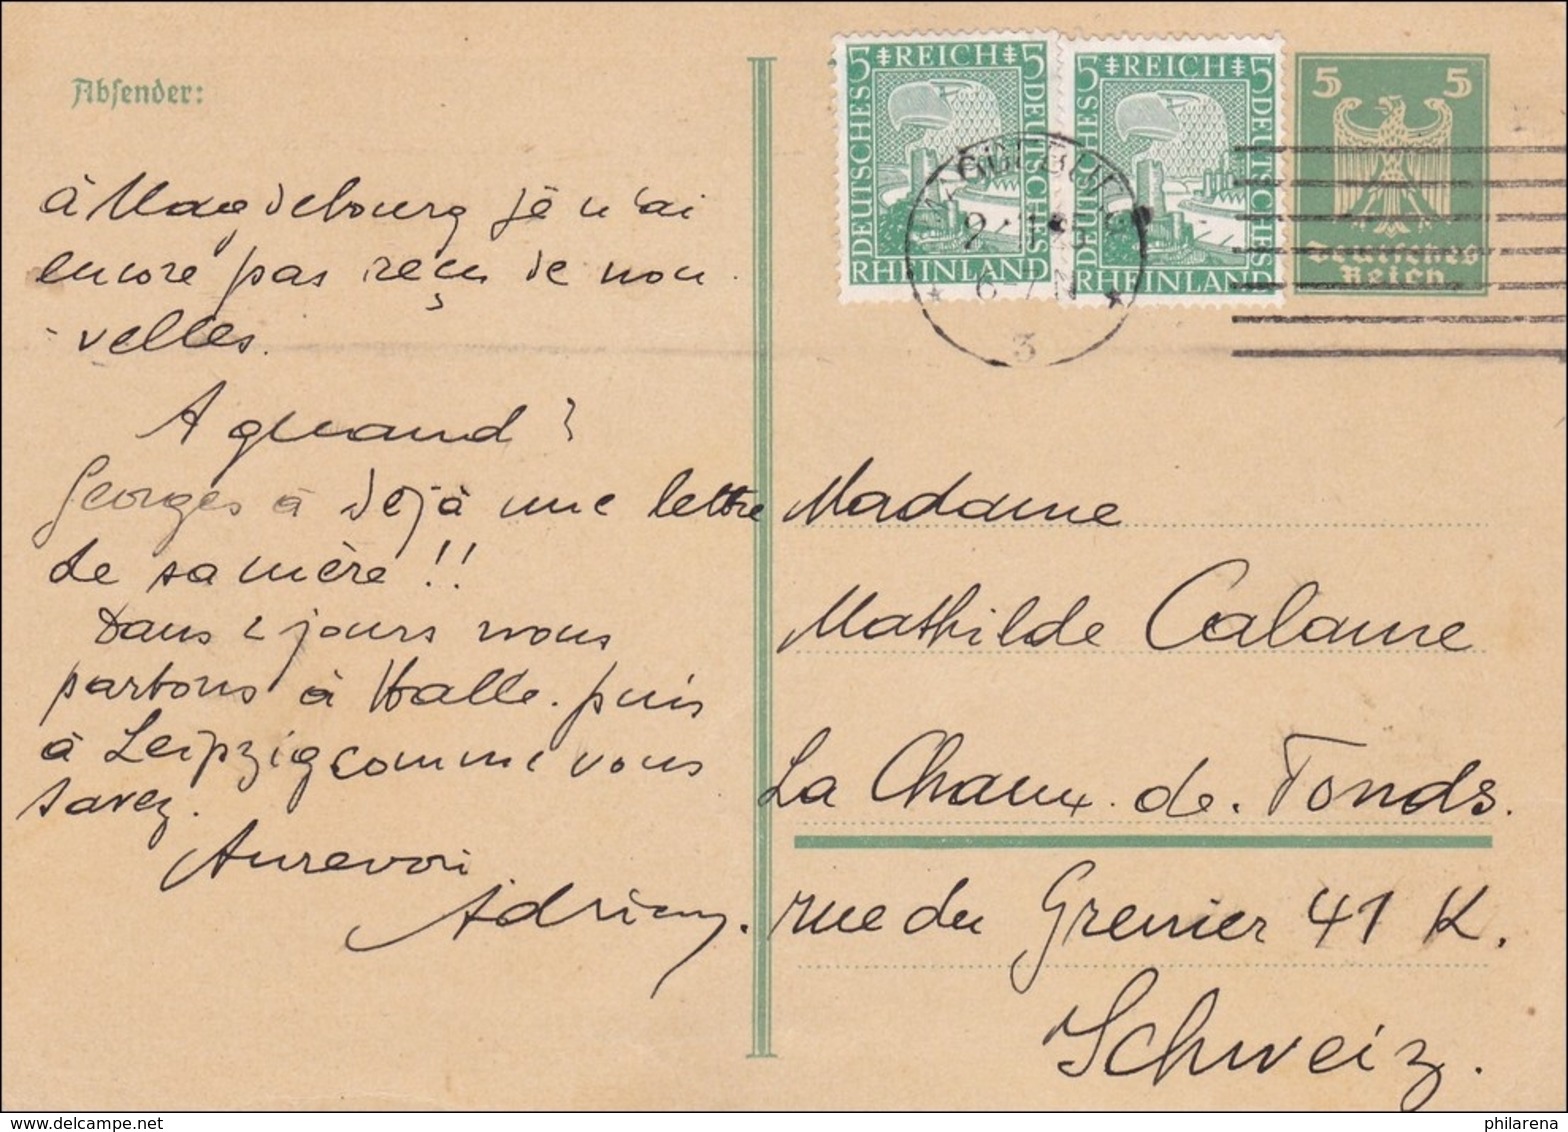 Absender:
à Magdebourg je n'ai
encore pas reçu de nou
-velles.
A quand?
Georges à déjà une lettre
de sa mère!!
Dans 2 jours nous
partons à Halle. puis
à Leipzig comme vous
savez.
Aurevoir
Adrien.
5 REICH 5
DEUTSCHES
DEUTSCHES
RHEINLAND
5 REICH 5
DEUTSCHES
DEUTSCHES
RHEINLAND
5 5
Deutsches
Reich
MAGDEBURG
6-7 N
3
Madame
Mathilde Calame
La Chaux-de-Fonds.
rue du Grenier 41 K.
Schweiz.
philarena.com